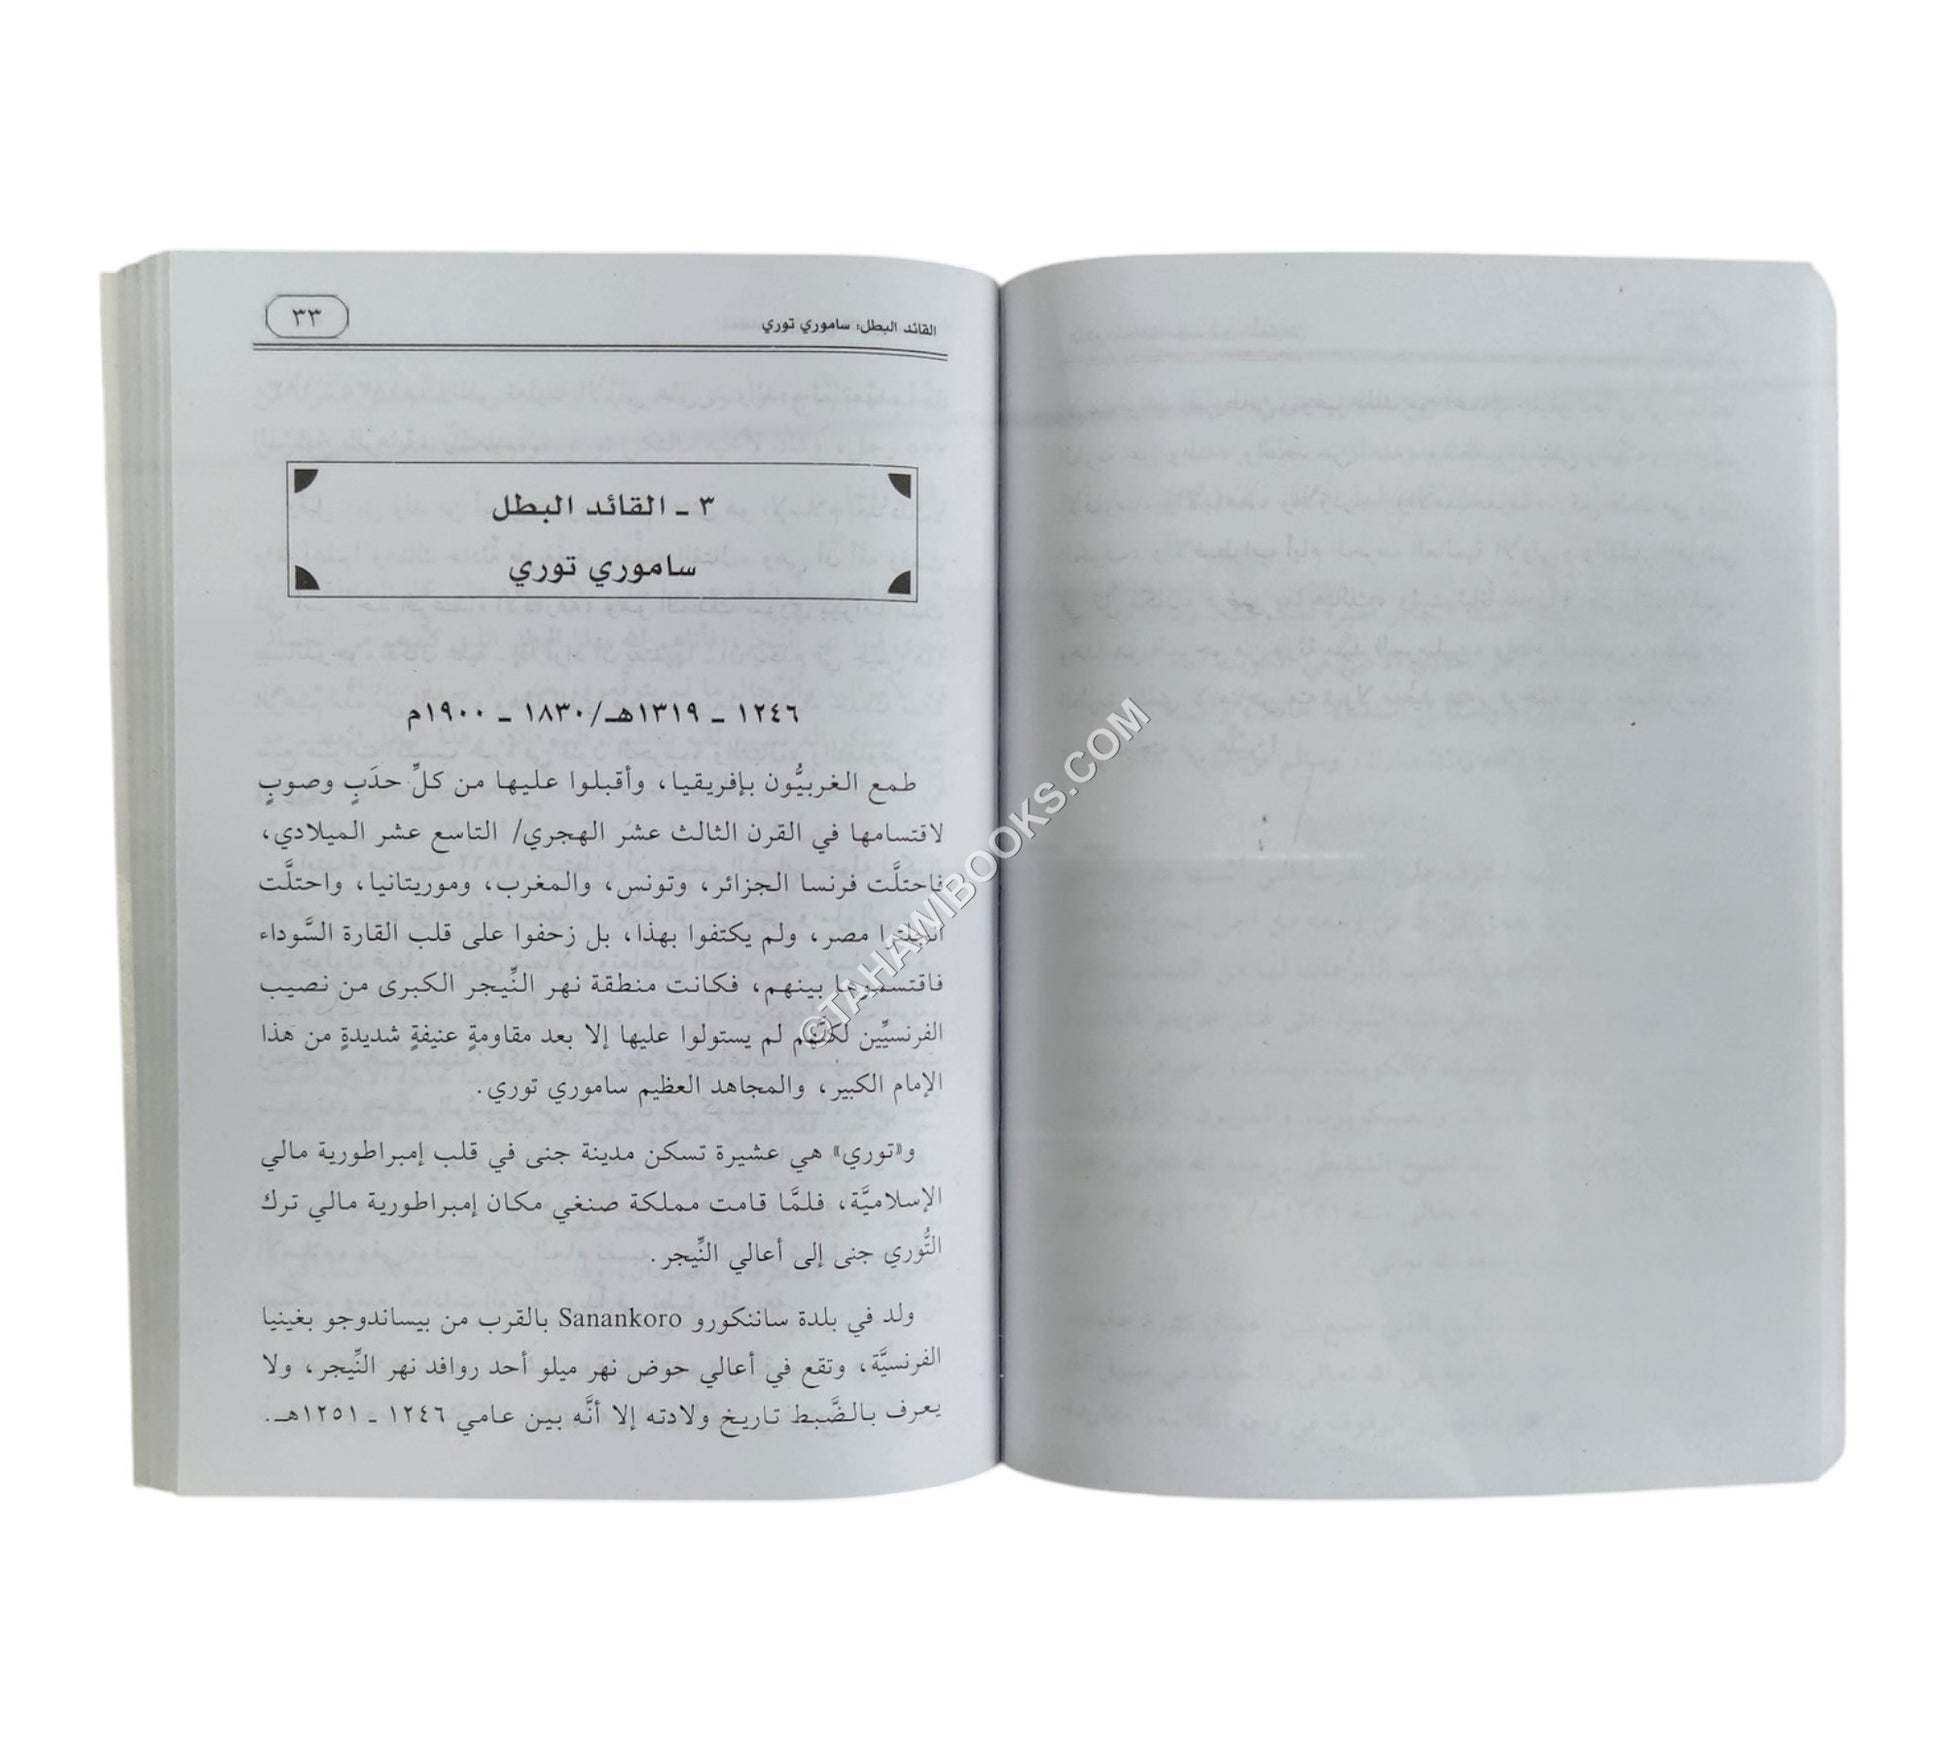 القائد البطل: ساموري توري
٣٣
٣ ـ القائد البطل
ساموري توري
١٢٤٦ ـ ١٣١٩هـ/١٨٣٠ ـ ١٩٠٠م
طمع الغربيُّون بإفريقيا، وأقبلوا عليها من كلِّ حدَبٍ وصوبٍ
لاقتسامها في القرن الثالث عشر الهجري/ التاسع عشر الميلادي،
فاحتلَّت فرنسا الجزائر، وتونس، والمغرب، وموريتانيا، واحتلَّت
انجلترا مصر، ولم يكتفوا بهذا، بل زحفوا على قلب القارة السَّوداء
فاقتسموها بينهم، فكانت منطقة نهر النِّيجر الكبرى من نصيب
الفرنسيِّين لكنَّهم لم يستولوا عليها إلا بعد مقاومةٍ عنيفةٍ شديدةٍ من هذا
الإمام الكبير، والمجاهد العظيم ساموري توري.
و«توري» هي عشيرة تسكن مدينة جنى في قلب إمبراطورية مالي
الإسلاميَّة، فلمَّا قامت مملكة صنغي مكان إمبراطورية مالي ترك
التُّوري جنى إلى أعالي النِّيجر.
ولد في بلدة ساننكورو Sanankoro بالقرب من بيساندوجو بغينيا
الفرنسيَّة، وتقع في أعالي حوض نهر ميلو أحد روافد نهر النِّيجر، ولا
يعرف بالضَّبط تاريخ ولادته إلا أنَّه بين عامي ١٢٤٦ ـ ١٢٥١هـ.
©TAHAWIBOOKS.COM